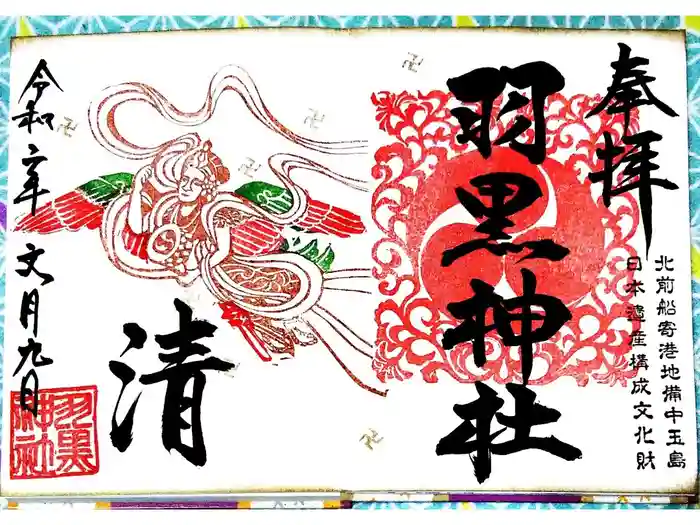 奉拝
北前船寄港地備中玉島
日本遺産構成文化財
羽黒神社
清
令和二年 文月九日
羽黒
神社